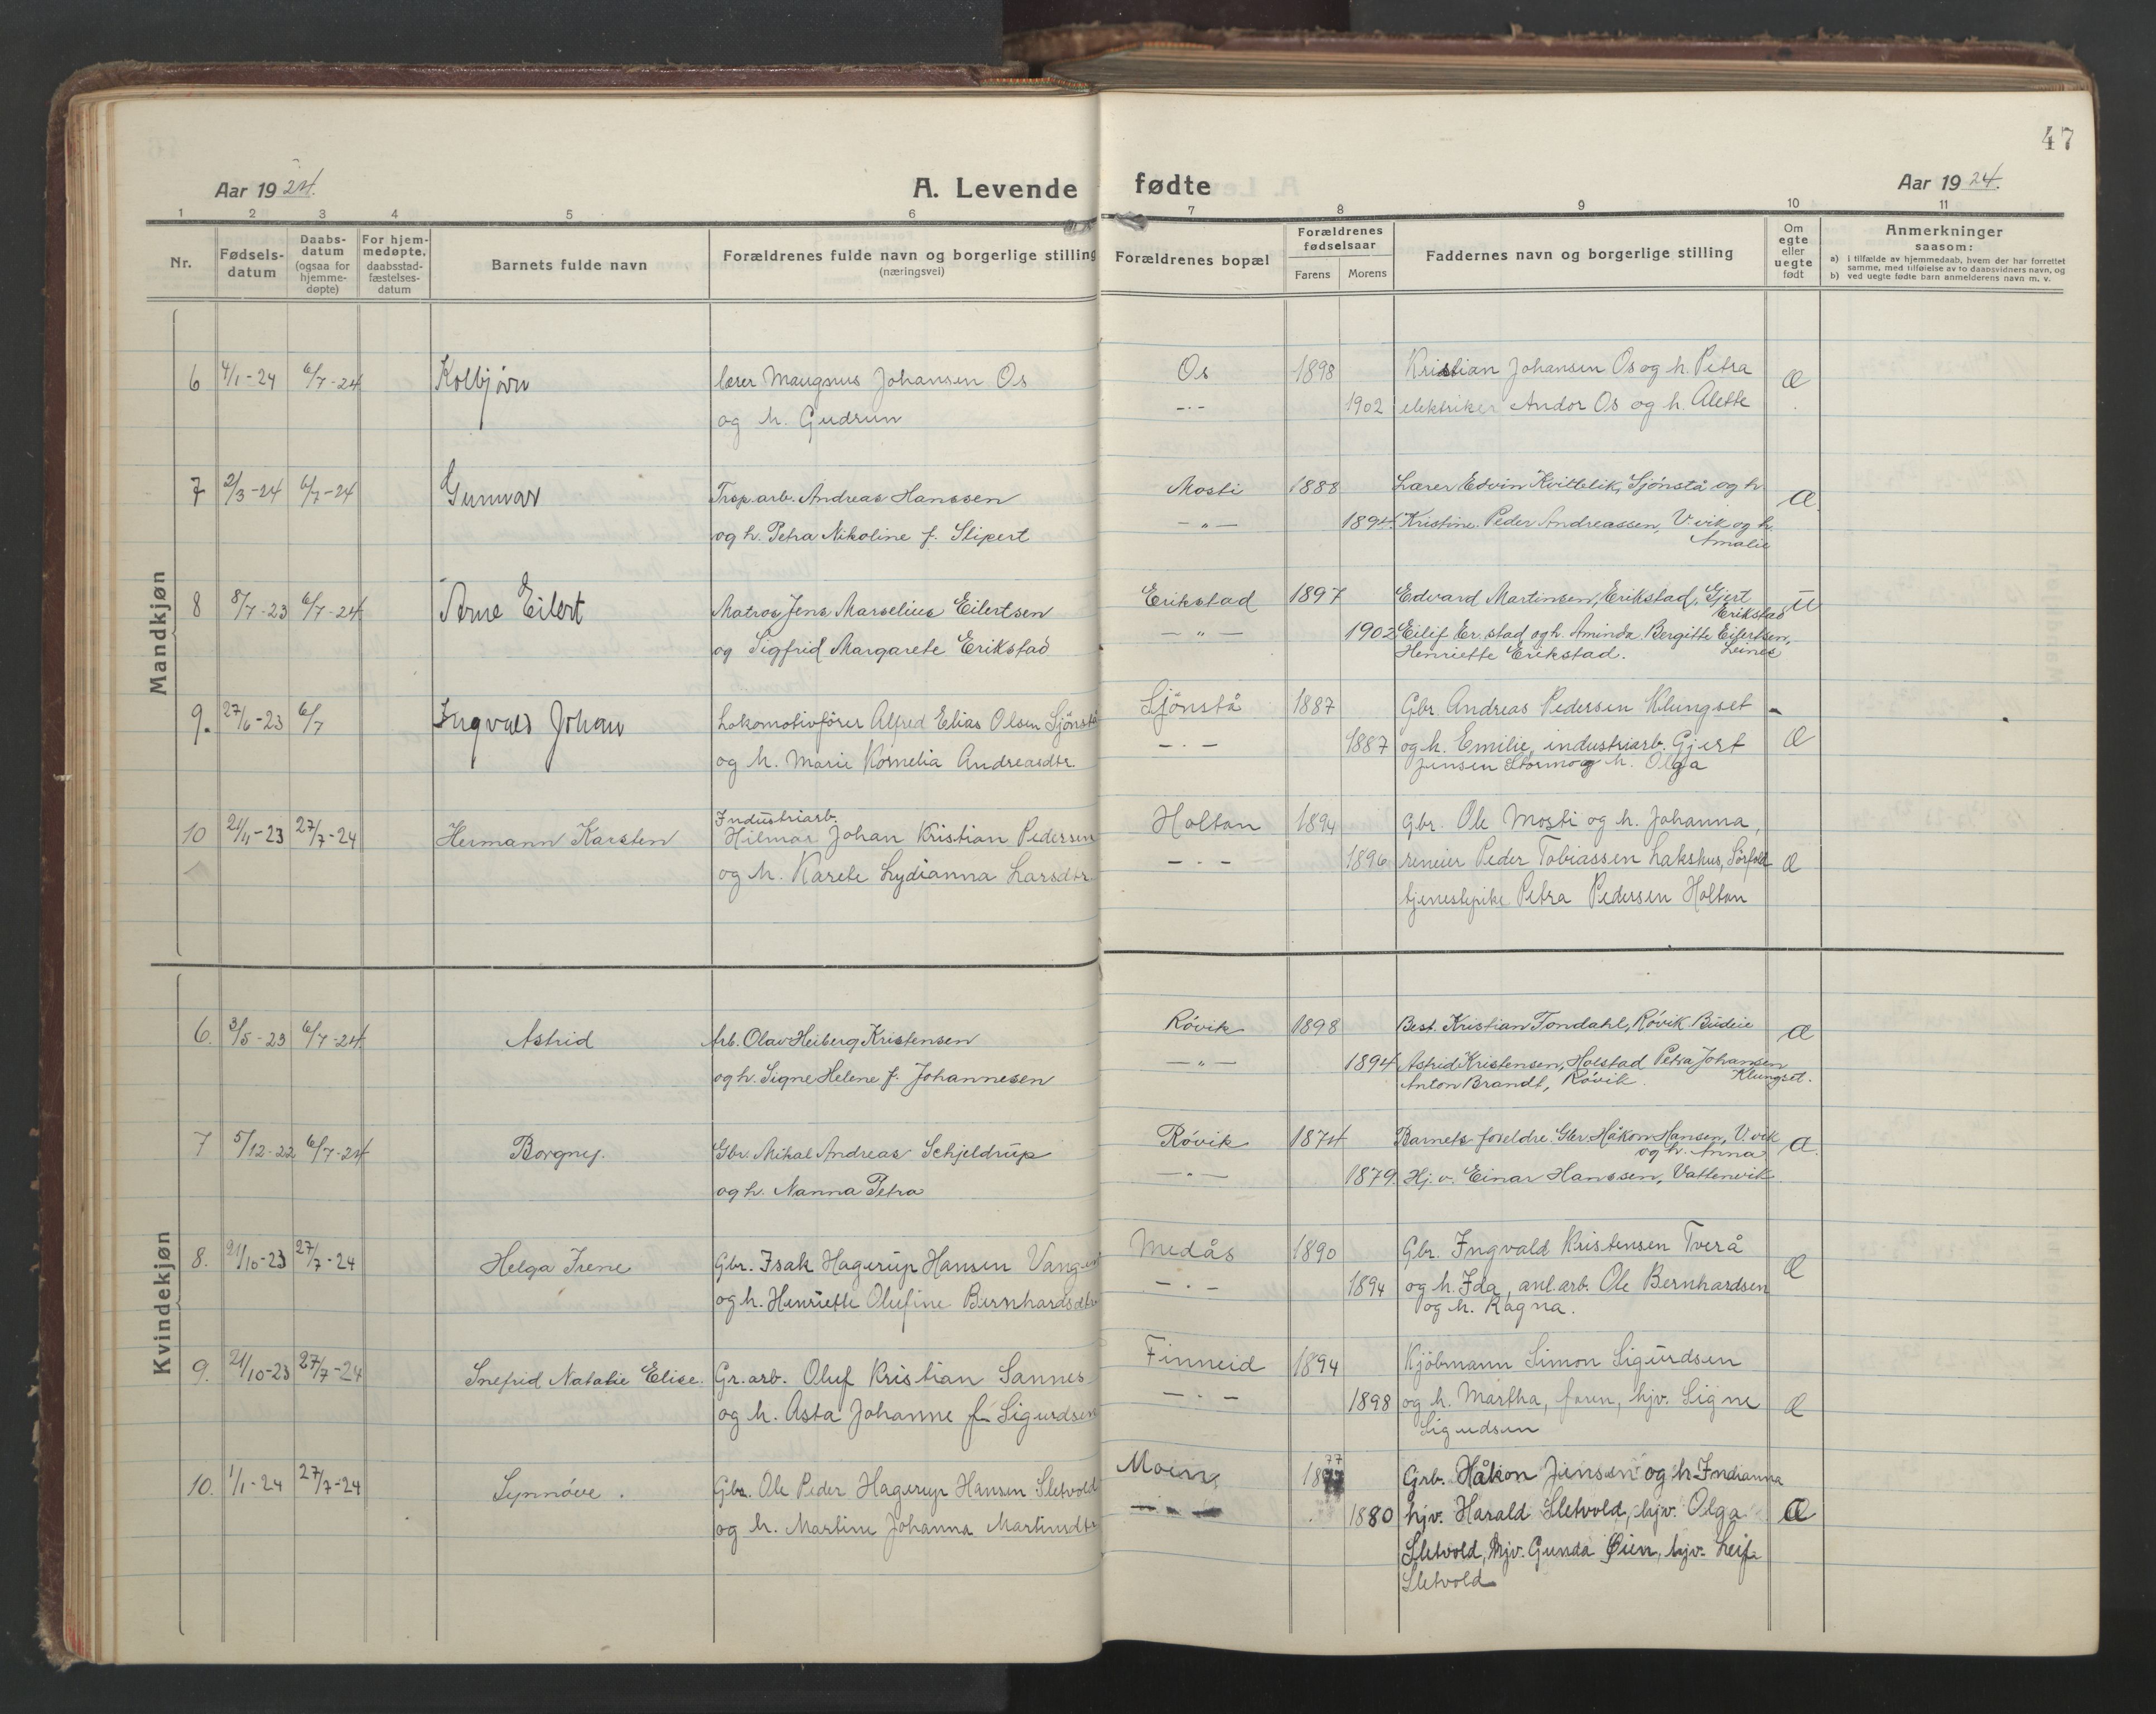 47
Aar 1924.
A. Levende fødte
Aar 1924.
1 2 3 4 5 6 7 8 9 10 11
Nr.
Fødsels-
datum
Daabs-
datum
(ogsaa for
hjemme-
døpte)
For hjem-
medøpte,
daabsstad-
fæstelses-
datum
Barnets fulde navn
Forældrenes fulde navn og borgerlige stilling
(næringsvei)
Forældrenes bopæl
Forældrenes
fødselsaar
Farens Morens
Faddernes navn og borgerlige stilling
Om
egte
eller
uegte
født
Anmerkninger
saasom:
a) i tilfælde av hjemmedaab, hvem der har forrettet
samme, med tilføielse av to daabsvidners navn, og
b) ved uegte fødte barn anmelderens navn m. v.
Mandkjøn
6 4/1-24 6/7-24 Kolbjørn lærer Maugnus Johansen Os Os 1898 Kristian Johansen Os og h. Petra Æ
og h. Gudrun -"- 1902 elektriker Andor Os og h. Alette
7 2/3-24 6/7-24 Gunnvar Trsp.arb. Andreas Hanssen Mosti 1888 Lærer Edvin Kvittelik, Sjönstå og h. Æ
og h. Petra Nikoline f. Slipert -"- 1894 Kristine. Peder Andreassen, V.vik og h.
Amalie
8 8/7-23 6/7-24 Arne Eilert Matros Jens Marselius Eilertsen Erikstad 1897 Edvard Martinsen, Erikstad, Gjert U
Erikstad
og Sigfrid Margarete Erikstad -"- 1902 Eilif Er.stad og h. Aminda Bergitte Eilertsen,
Henriette Erikstad. Leines
9. 27/6-23 6/7 Ingvald Johan Lokomotivförer Alfred Elias Olsen Sjönstå Sjönstå 1887 Gbr. Andreas Pedersen Klungset
og h. Marie Kornelia Andreasdtr. -"- 1887 og h. Emilie, industriarb. Gjert Æ
Jensen Stormo og h. Olga
10 21/11-23 27/7-24 Hermann Karsten Industriarb.
Hilmar Johan Kristian Pedersen Holtan 1894 Gbr. Ole Mosti og h. Johanna,
og h. Karete Lydianna Larsdtr. -"- 1896 Peder Tobiassen Lakshus, Sörfold Æ
tjenestepike Petra Pedersen Holtan
Kvindekjøn
6. 3/5-23 6/7-24 Astrid Arb. Olav Heiberg Kristensen Róvik 1898 Best. Kristian Tondahl, Róvik. Budeie Æ
og h. Signe Helene f. Johannesen -"- 1894 Astrid Kristensen, Holstad Petra Johansen
Anton Brandt, Róvik. Klungset.
7 5/12-22 6/7-24 Borgny. Gbr. Mikal Andreas Schjeldrup Róvik 1874 Barnets foreldre. Gbr. Håkon Hansen, V.vik Æ.
og h. Anna
og h. Nanna Petra -"- 1879. Hj.v. Einar Hanssen, Vattenvik
8. 21/10-23 27/7-24 Helga Irene Gbr. Isak Hagerup Hansen Medås 1890 Gbr. Ingvald Kristensen Tverå
og h. Henriette Olufine Bernhardsdtr -"- 1894 og h. Ida, anl.arb. Ole Bernhardsen Æ
og h. Ragna.
9. 21/10-23 27/7-24 Snefrid Natalie Elise. Gr.arb. Oluf Kristian Sannes Finneid 1894 Kjöbmann Simon Sigurdsen
og h. Asta Johanne f. Sigurdsen -"- 1898 og h. Martha, faren, hjv. Signe Æ
Sigurdsen
10. 1/1-24 27/7-24 Synnöve. Gbr. Ole Peder Hagerup Hansen Sletvold Moen 1877 Grb. Håkon Jensen og h. Indianna
og h. Martine Johanna Martinsdtr -"- 1880 hjv. Harald Sletvold, hjv. Olga Æ
Sletvold, hjv. Gunda Øien, hjv. Leif
Sletvold